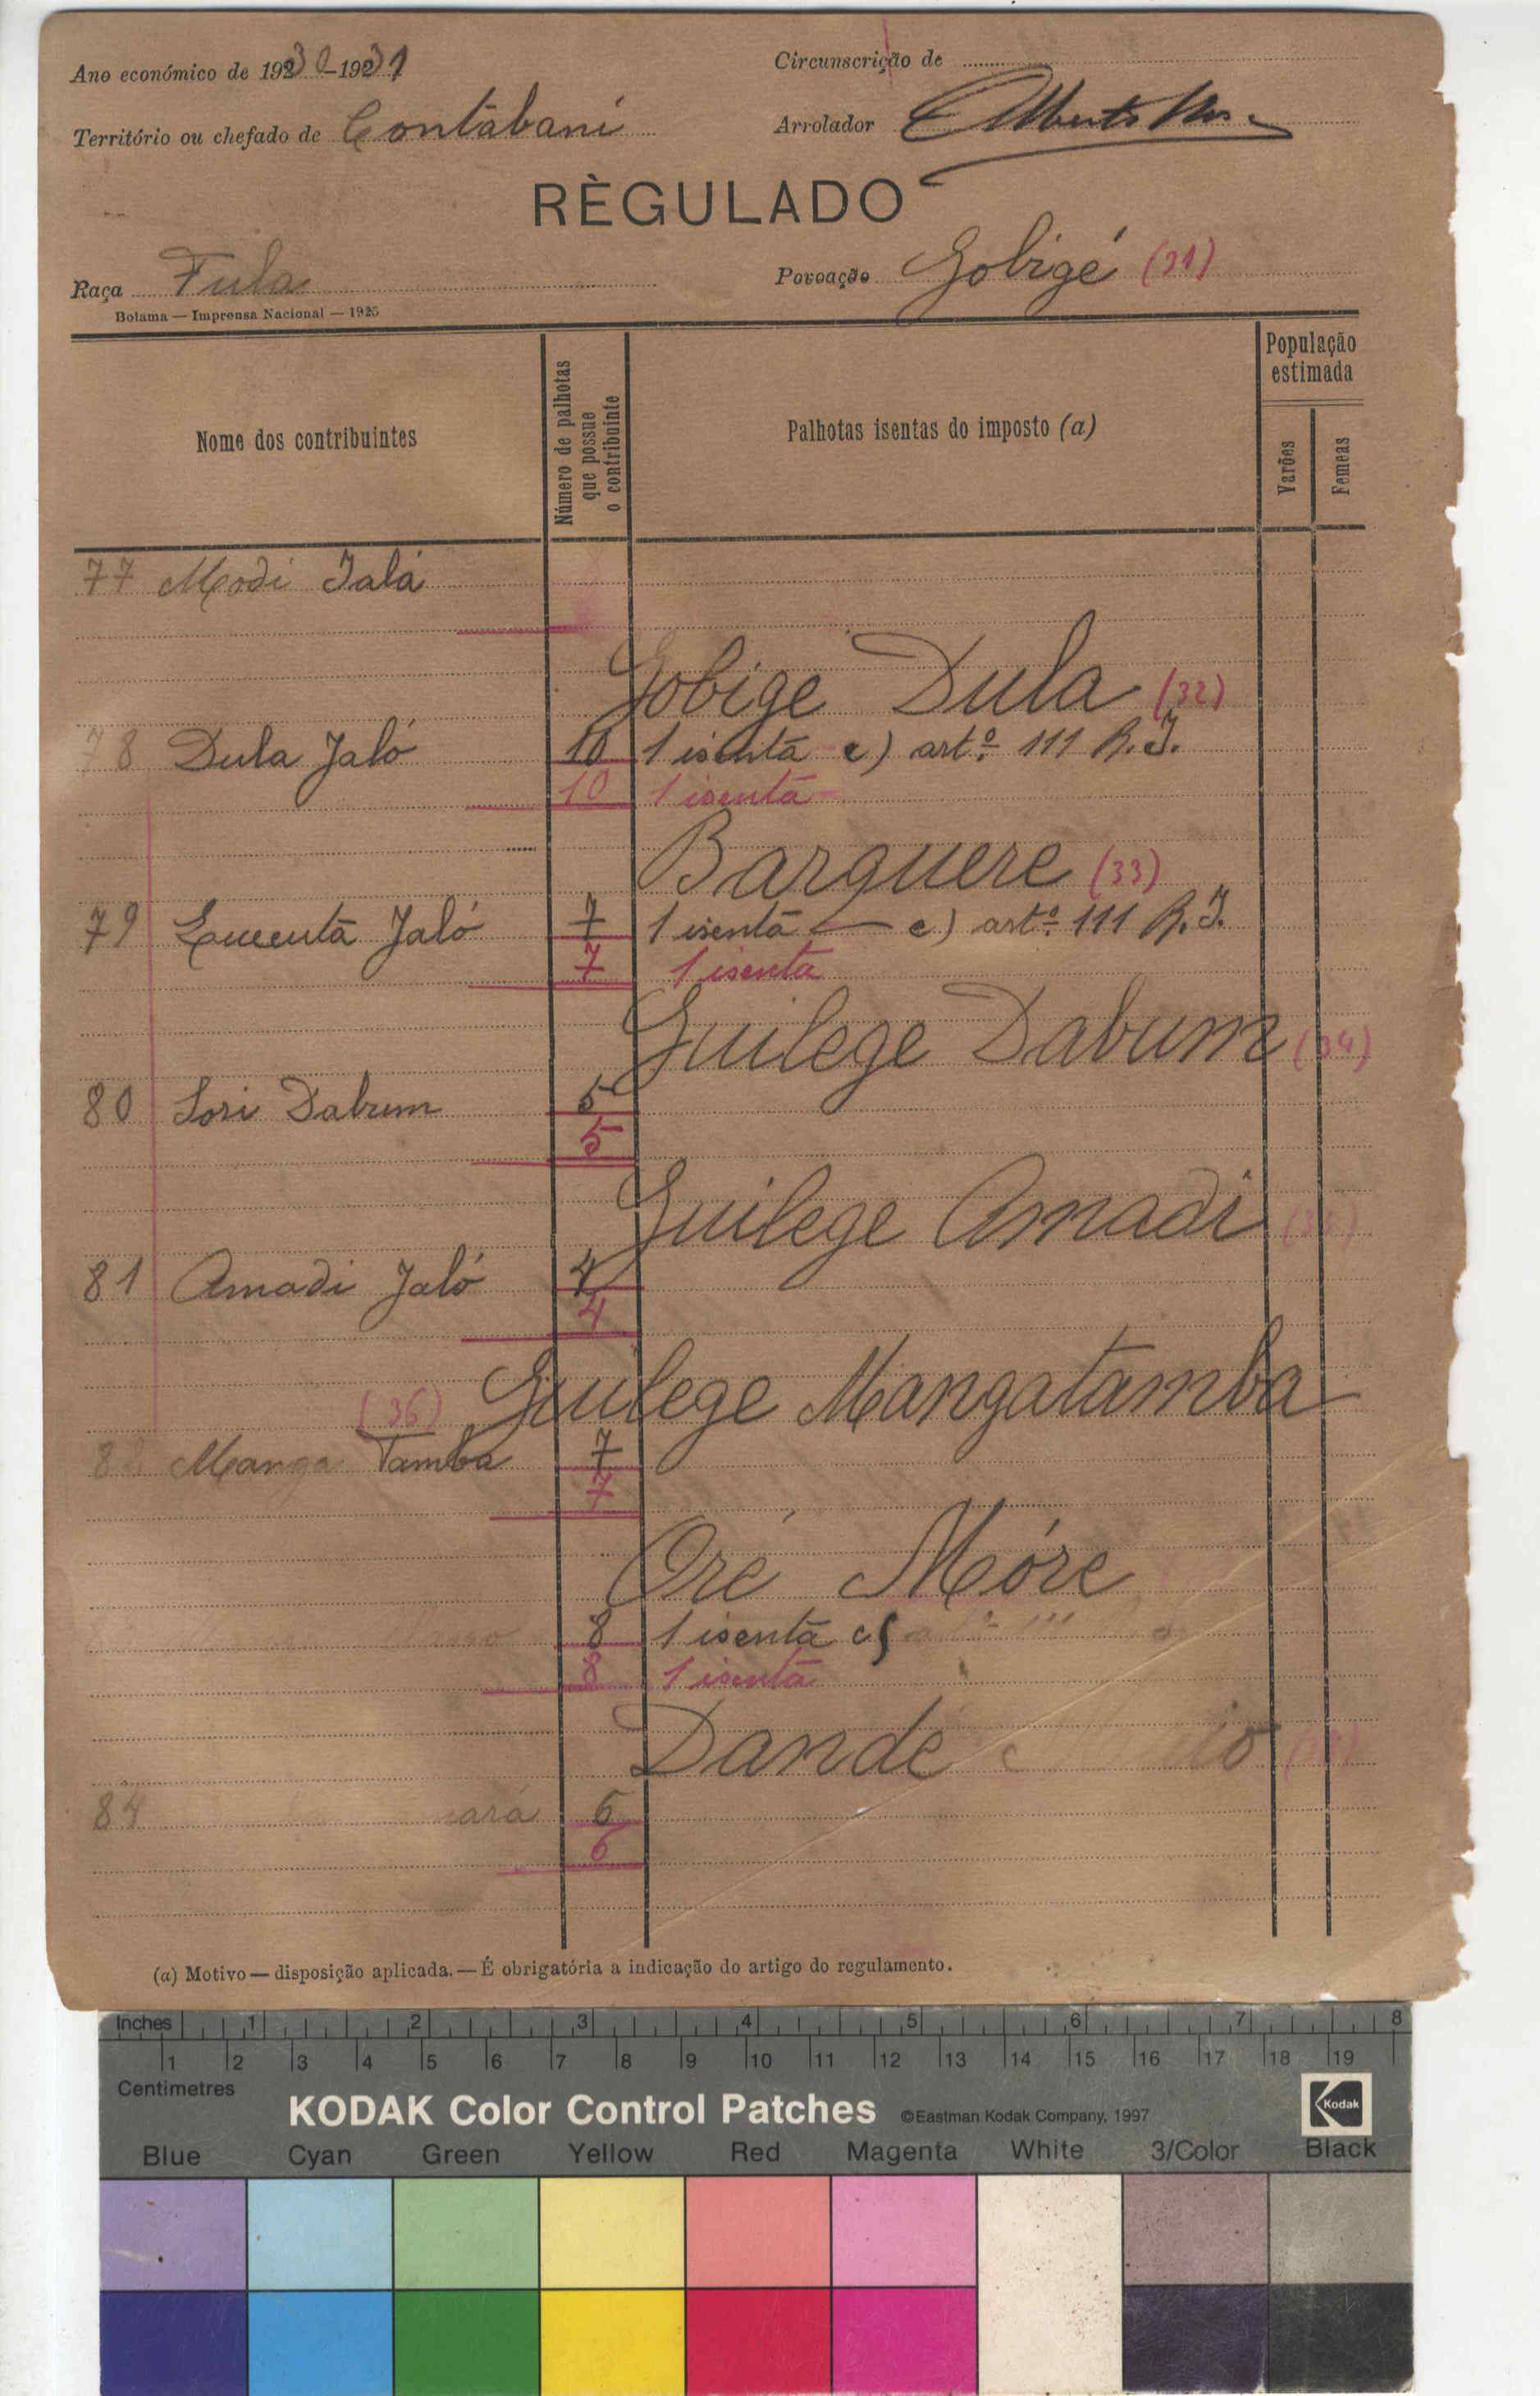 Ano económico de 1930-1931
Circunscrição de
Território ou chefado de Contábani
Arrolador Alberto
RÈGULADO
Raça Fula
Povoação Gobigé (31)
Bolama — Imprensa Nacional — 1925
Nome dos contribuintes
Número de palhotas que possue o contribuinte
Palhotas isentas do imposto (a)
População estimada
Varões
Femeas
77 Modi Jalá
Gobige Dula (32)
78 Dula Jaló 10 1 isenta c) artº 111 R.I.
10 1 isenta
Barquere (33)
79 Jaló 7 1 isenta — c) artº 111 R.I.
7 1 isenta
Guilege Dabum (34)
80 Sori Dabum 5
5
Guilege Amadi
81 Amadi Jaló 4
4
(36) Guilege Mangatamba
82 Manga Tamba 7
7
Oré Móre
8 1 isenta c)
8 1 isenta
Dandé
84 6
6
(a) Motivo — disposição aplicada. — É obrigatória a indicação do artigo do regulamento.
Inches 1 2 3 4 5 6 7 8
1 2 3 4 5 6 7 8 9 10 11 12 13 14 15 16 17 18 19
Centimetres
KODAK Color Control Patches ©Eastman Kodak Company, 1997 Kodak
Blue Cyan Green Yellow Red Magenta White 3/Color Black